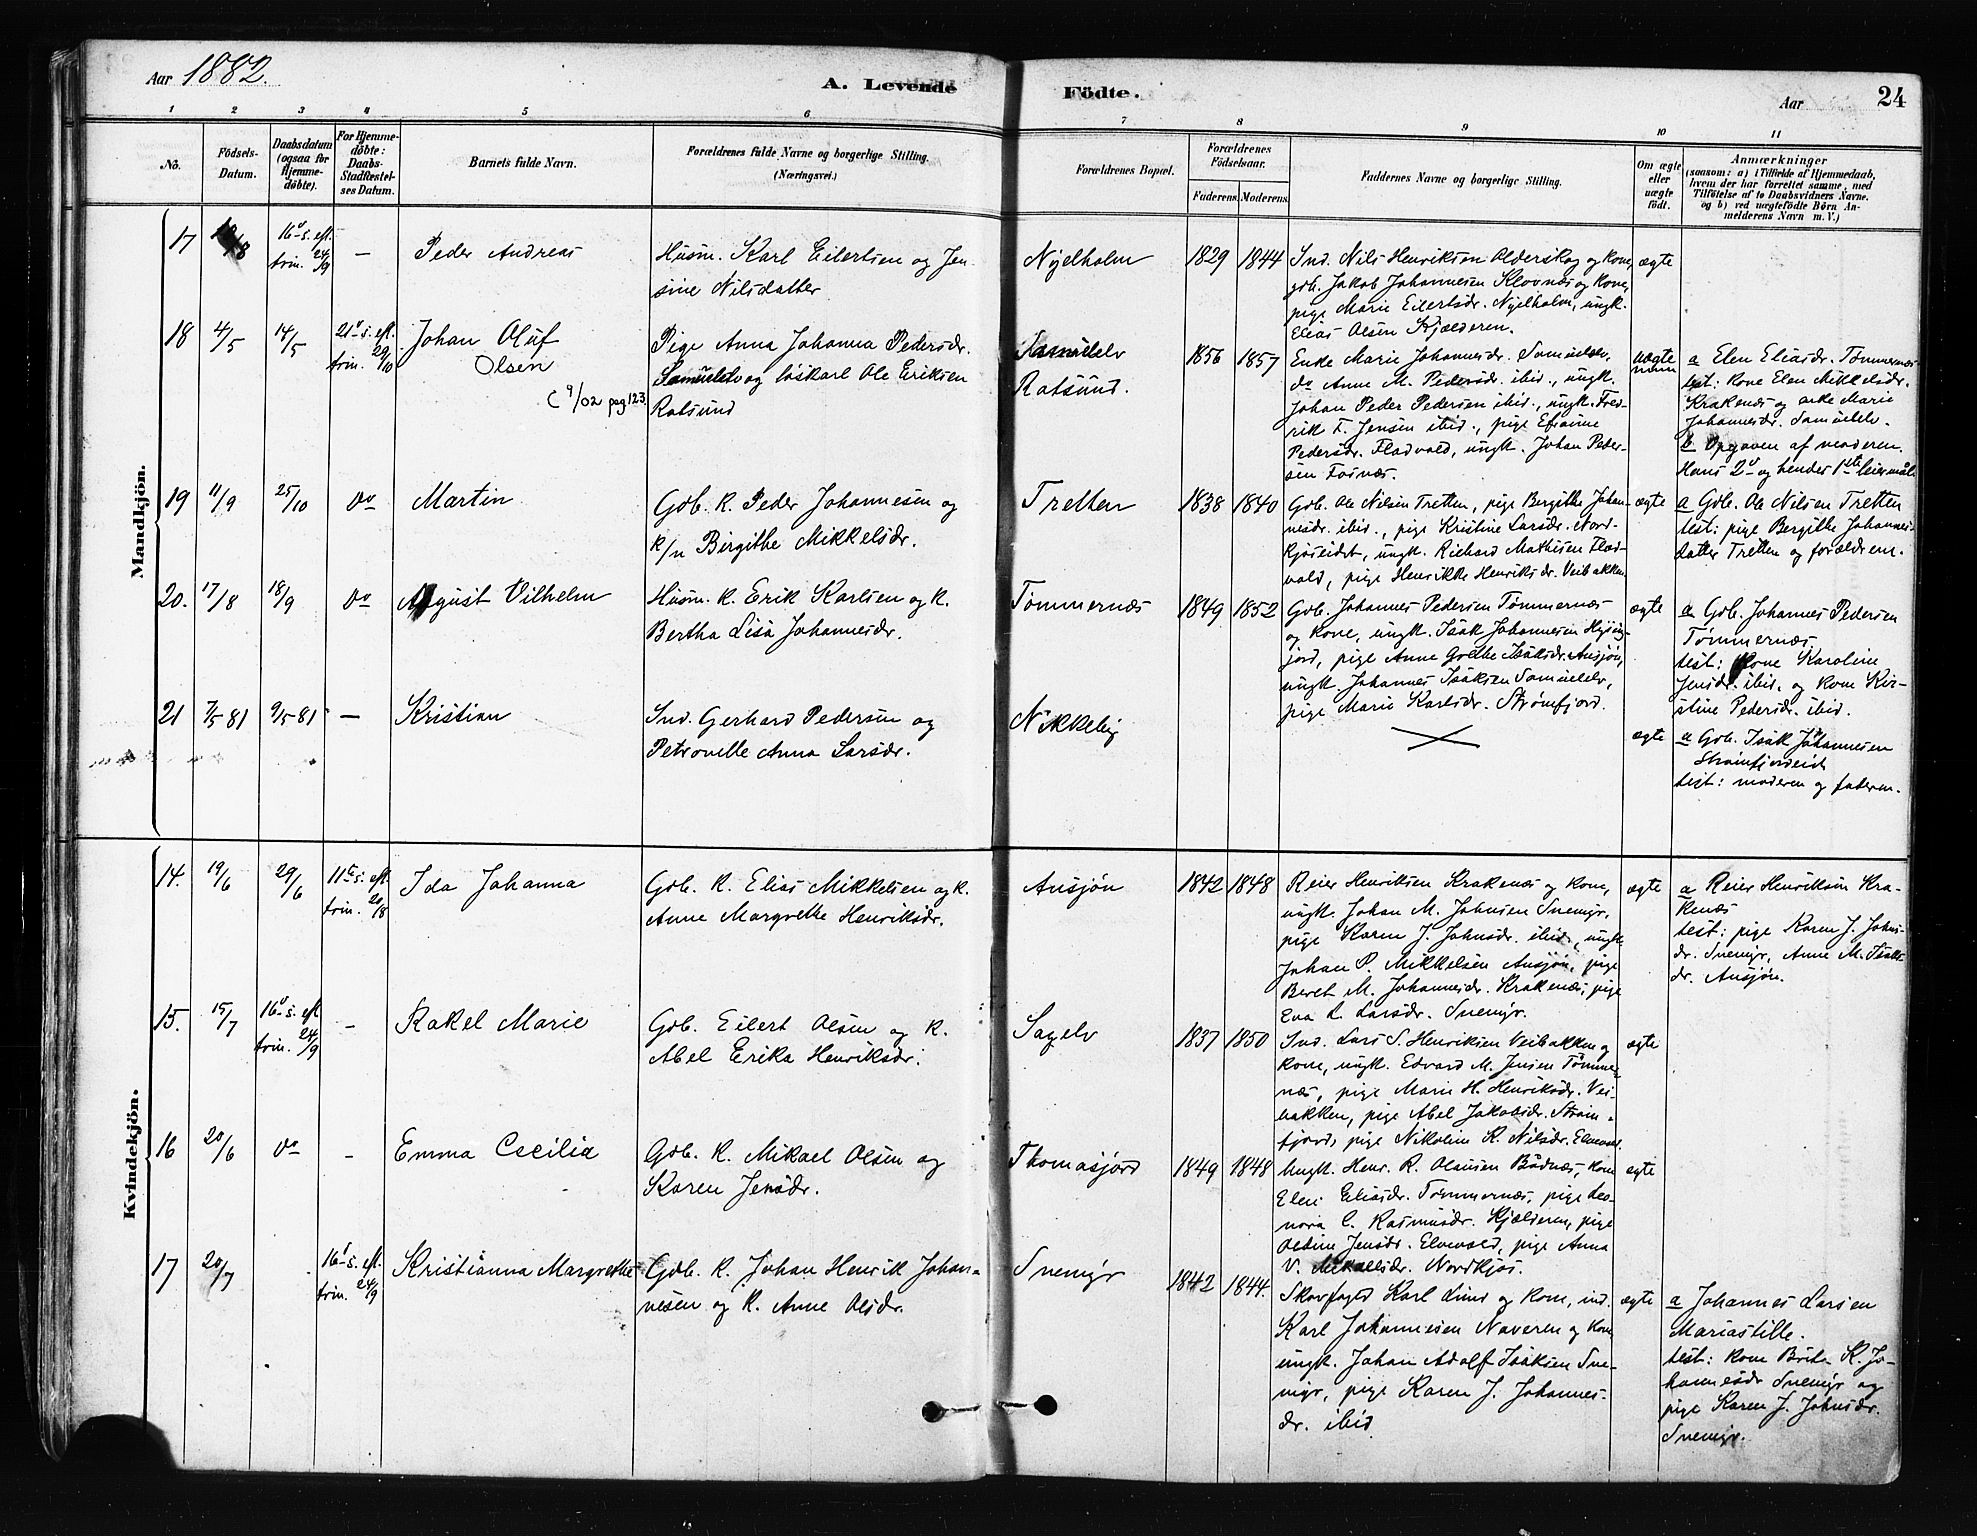 Aar 1882.
A. Levende
Födte.
Aar
24
1 2 3 4 5 6 7 8 9 10 11
No.
Födsels-
Datum.
Daabsdatum
(ogsaa for
Hjemme-
döbte).
For Hjemme-
döbte:
Daabs-
Stadfæstel-
ses Datum.
Barnets fulde Navn.
Forældrenes fulde Navne og borgerlige Stilling.
(Næringsvei.)
Forældrenes Bopæl.
Forældrenes
Födselsaar.
Faderens. Moderens.
Faddernes Navne og borgerlige Stilling.
Om ægte
eller
uægte
födt.
Anmærkninger
(saasom: a) i Tilfælde af Hjemmedaab,
hvem der har forrettet samme, med
Tilföielse af to Daabsvidners Navne.
og b) ved uægtefödte Börn An-
melderens Navn m. V.)
Mandkjön.
17
16d s. eft.
trin. 24/9
–
Peder Andreas
Husm. Karl Eilertsen og Jen
sine Nilsdatter
Nyelholm
1829 1844
Ind. Nils Henriksen Olderskog og kone,
gdb. Jakob Johannesen Klovnæs og kone,
pige Marie Eilertsdr. Nyelholm, ungk.
Elias Olsen Kjælderen.
ægte
18
4/5
14/5
21d s. eft.
trin. 29/10
Johan Oluf
Olsen
( 9/02 pag 123.
Pige Anna Johanna Pedersdr.
Samuelelv og löskarl Ole Eriksen
Rotsund
Samuelelv
Rotsund.
1856 1857
Enke Marie Johannesdr. Samuelelv,
do Anne M. Pedersdr. ibid., ungk.
Johan Peder Pedersen ibid., ungk. Fred-
rik F. Jensen ibid., pige Efianne
Pedersdr. Fladvold, ungk. Johan Peder-
sen Fosnæs.
uægte
a Elen Eliasdr. Tømmernæs
test: kone Elen Mikkelsdr.
Krakenæs og enke Marie
Johannesdr. Samuelelv.
b Opgaven af moderen.
Hans 2d og hendes 1ste leiermål
19
11/9
25/10
do
Martin
Gdb. k. Peder Johannesen og
k/n Birgithe Mikkelsdr.
Tretten
1838 1840
Gdb. Ole Nilsen Tretten, pige Bergithe Johan-
nesdr. ibid., pige Kristine Larsdr. Nord-
kjoseidet, ungk. Richard Mathisen Flad-
vold, pige Henrikke Henriksdr. Veibakken
ægte
a Gdb. Ole Nilsen Tretten
test: pige Bergithe Johannes-
datter Tretten og forældrene.
20.
17/8
18/9
do
August Vilhelm
Husm. k. Erik Karlsen og k.
Bertha Lisa Johannesdr.
Tømmernæs
1849 1852
Gdb. Johannes Pedersen Tømmernæs
og kone, ungk. Isak Johannesen Kysing-
jord, pige Anne Grethe Isaksdr. Ansjøn,
ungk. Johannes Isaksen Samuelelv,
pige Marie Karlsdr. Strømfjord.
ægte
a Gdb. Johannes Pedersen
Tømmernæs
test: kone Karoline
Jensdr. ibid. og kone Kir-
stine Pedersdr. ibid.
21
7/5 81
9/5 81
–
Kristian
Ind. Gerhard Pedersen og
Petronelle Anna Larsdr.
Nikkeby
ægte
a Gdb. Isak Johannesen
Strømfjordeid
test: moderen og faderen.
Kvindekjön.
14.
19/6
29/6
11te s. eft.
trin. 20/8
Ida Johanna
Gdb. k. Elias Mikkelsen og k.
Anne Margrethe Henriksdr.
Ansjøn
1842 1848
Reier Henriksen Krakenæs og kone,
ungk. Johan M. Johnsen Snemyr,
pige Karen J. Johnsdr. ibid., ungk.
Johan P. Mikkelsen Ansjøn, pige
Beret M. Johannesdr. Krakenæs, pige
Eva L. Larsdr. Snemyr.
ægte
a Reier Henriksen Kra-
kenæs
test: pige Karen J. Johns-
dr. Snemyr, Anne M. Isaks
dr. Ansjøn.
15.
15/7
16d s. eft
trin. 24/9
–
Rakel Marie
Gdb. Eilert Olsen og k.
Abel Erika Henriksdr.
Sagelv
1837 1850
Ind. Lars S. Henriksen Veibakken og
kone, ungk. Edvard M. Jensen Tømmer-
næs, pige Marie H. Henriksdr. Vei-
bakken, pige Abel Jakobsdr. Strøm-
fjord, pige Nikoline K. Nilsdr. Elvevold.
ægte
16
20/6
do
–
Emma Cecilia
Gdb. k. Mikael Olsen og
Karen Jensdr.
Thomasjord
1849 1848
Ungk. Henr. R. Olausen Bødnæs, kone
Elen Eliasdr. Tømmernæs, pige Leo-
nora C. Rasmusdr. Kjælderen, pige
Oldine Jensdr. Elvevold, pige Anna
V. Mikalsdr. Nordkjos.
ægte
17
20/7
16d s. eft.
trin. 24/9
Kristianna Margrethe
Gdb. k. Johan Henrik Johan-
nesen og k. Anne Olsdr.
Snemyr
1842 1844.
Skovfoged Karl Lund og kone, ind.
Karl Johannesen Naveren og kone
ungk. Johan Adolf Isaksen Sne-
myr, pige Karen J. Johannes-
dr. ibid
ægte
a Johannes Larsen
Mariastille.
test: kone Brita K. Jo-
hannesdr Snemyr og
pige Karen J. Johnsdr.
Snemyr.